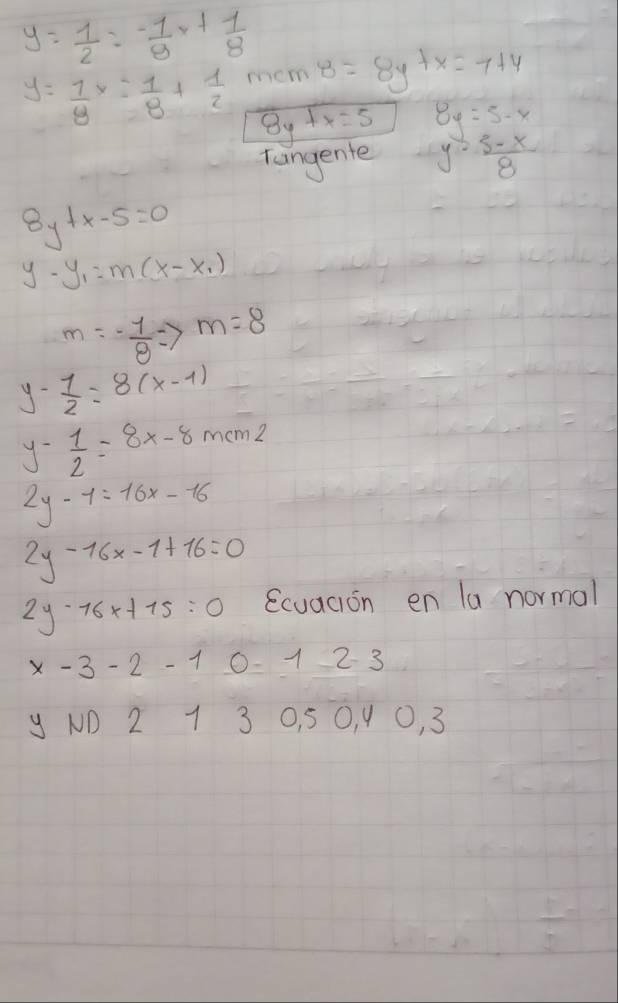 y = 1/2 = -1/8 x + 1/8
y = 1/8 x = 1/8 + 1/2 mcm 8 = 8y + x = 1 + 4
8y + x = 5 8y = 5 - x
Tangente y = 5-x/8
8y + x - 5 = 0
y - y₁ = m(x - x₁)
m = -1/8 => m = 8
y - 1/2 = 8(x - 1)
y - 1/2 = 8x - 8 mcm 2
2y - 1 = 16x - 16
2y - 16x - 1 + 16 = 0
2y - 16x + 15 = 0 Ecuación en la normal
x -3 -2 -1 0 1 2 3
y ND 2 1 3 0,5 0,4 0,3